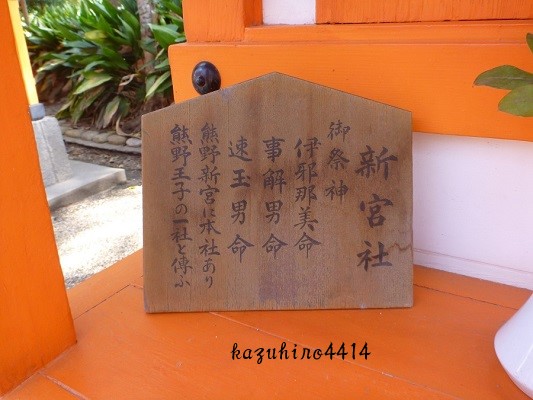 新宮社
御祭神
伊耶那美命
事解男命
速玉男命
熊野新宮に本社あり
熊野王子の一社と傳ふ
kazuhiro4414